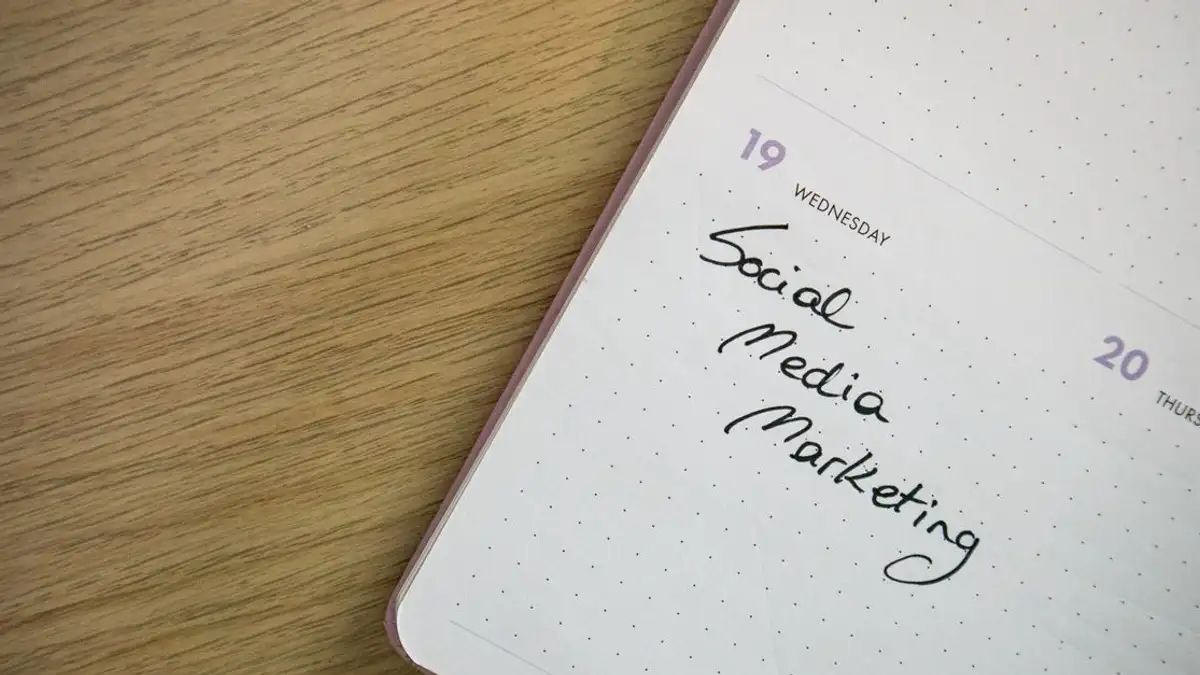 19 WEDNESDAY
Social
Media
Marketing
20